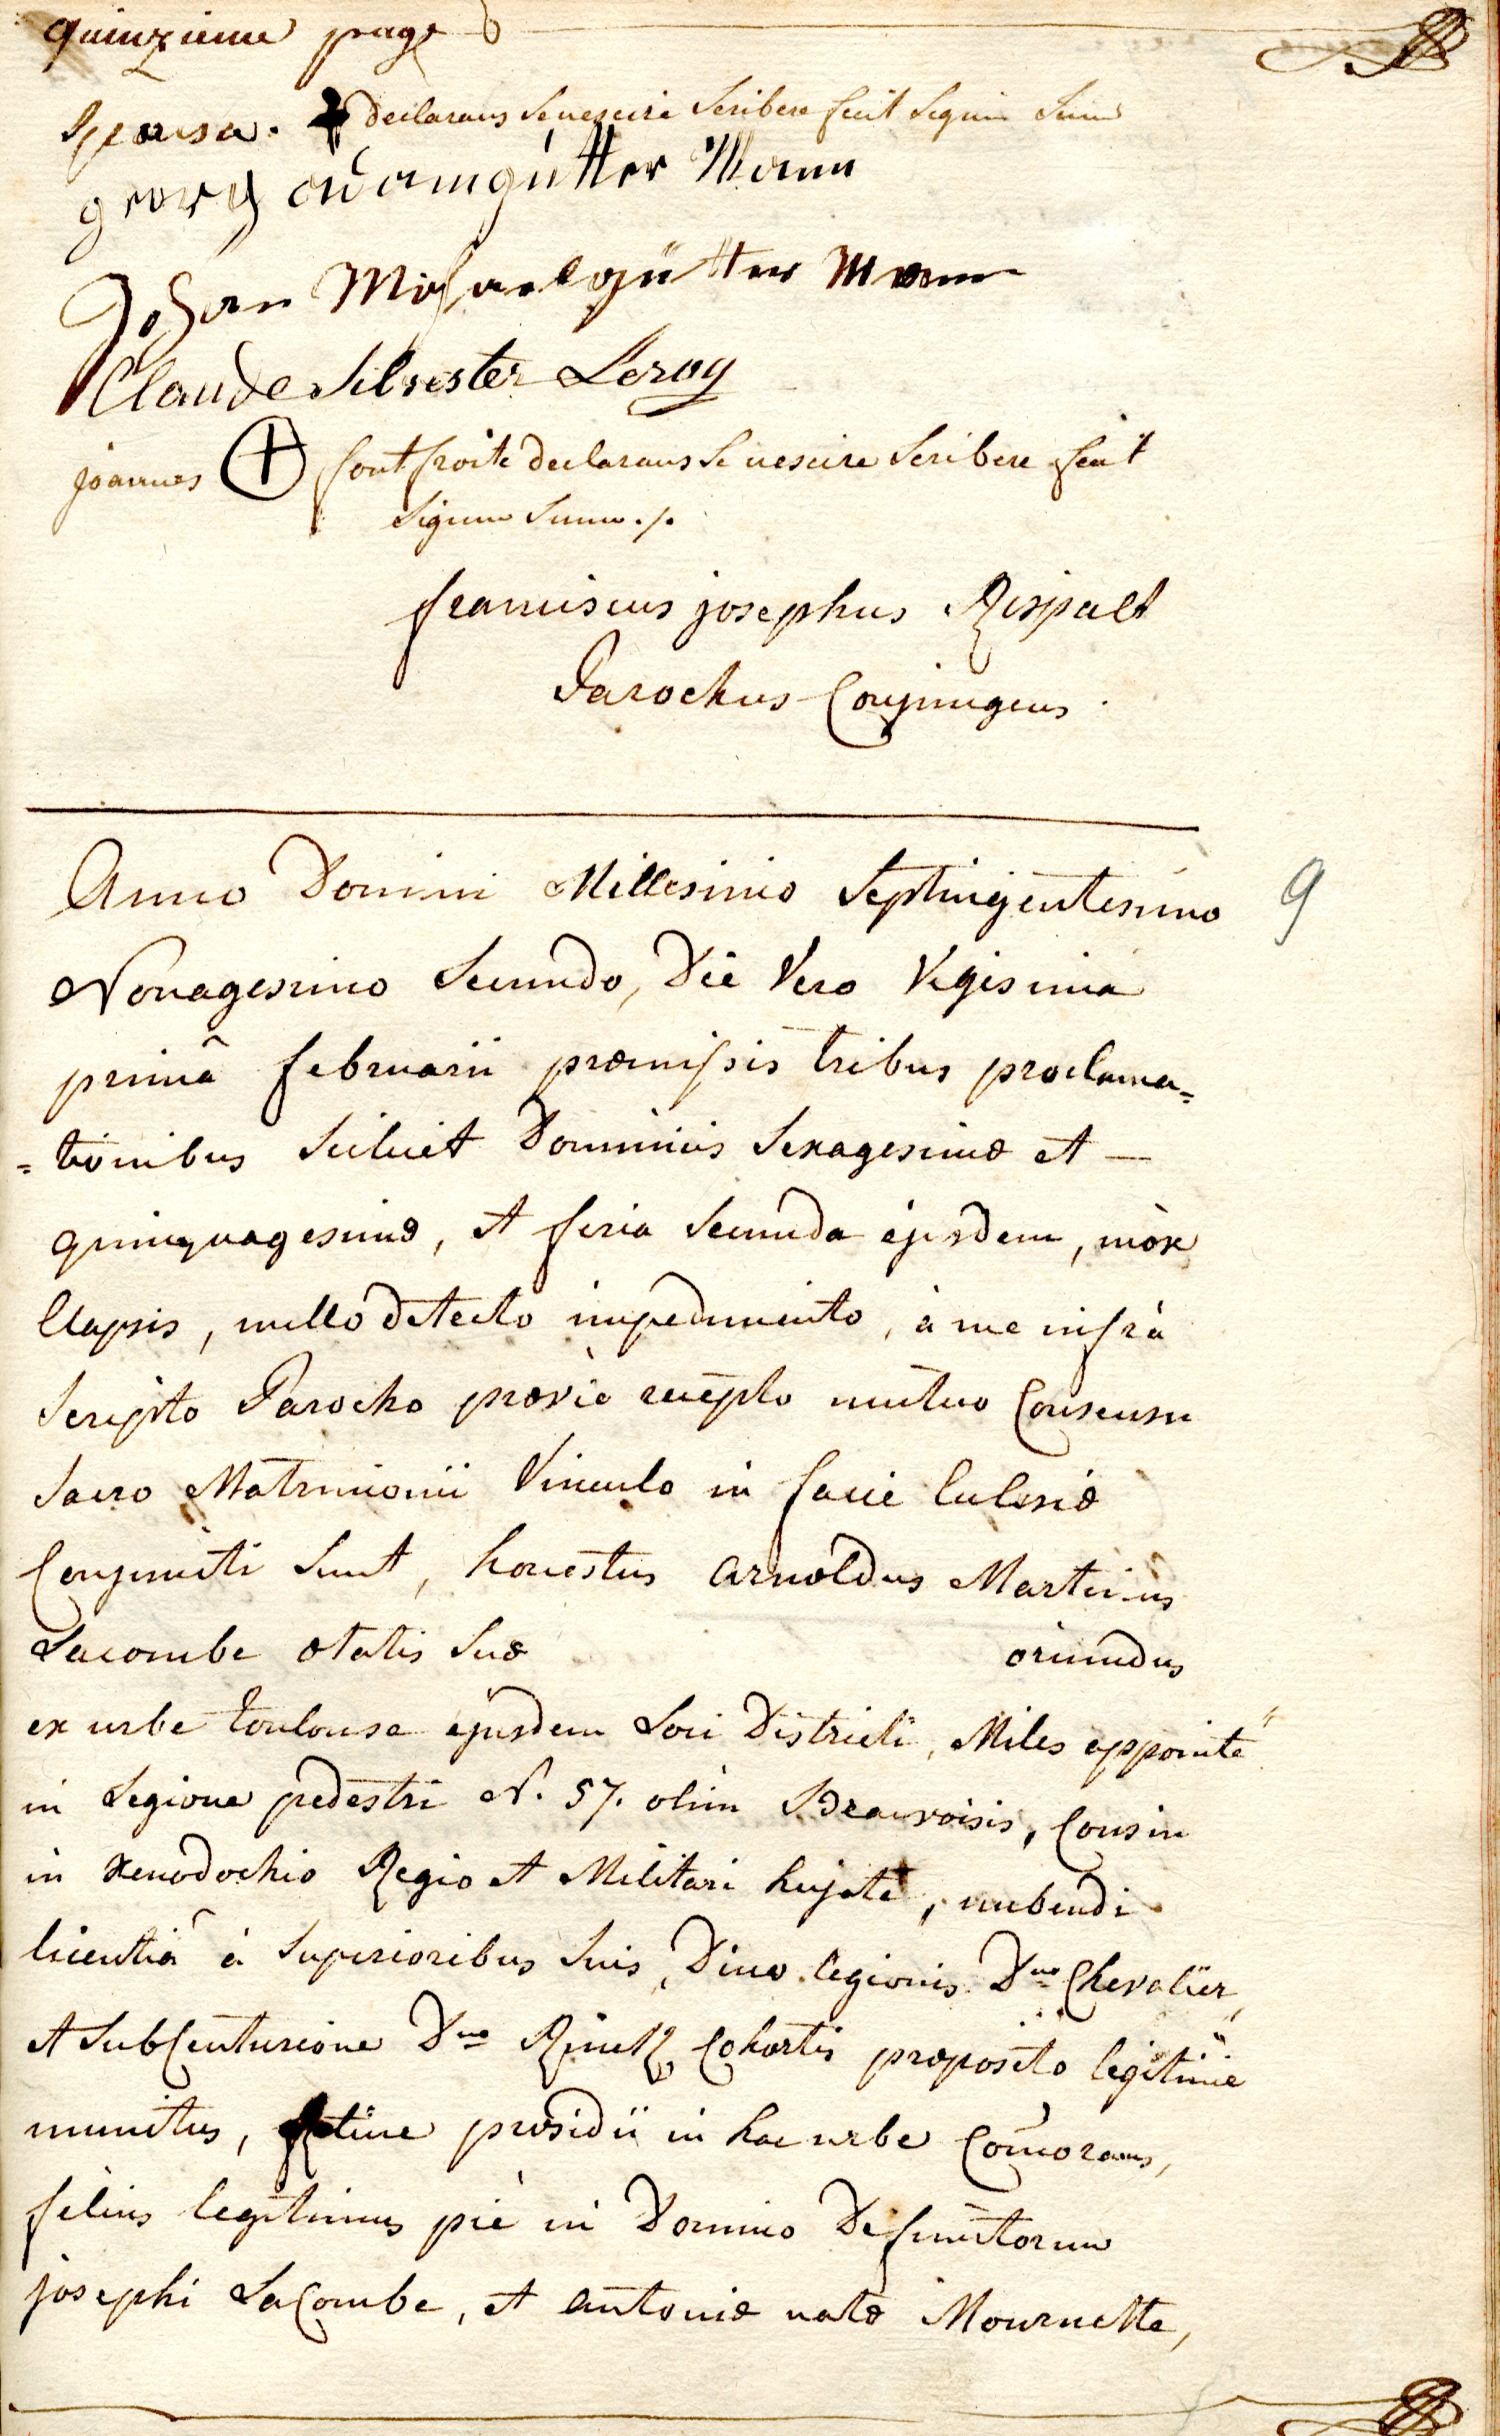 quinzieme page
Sponsa. declarans se nescire scribere fecit signum suum
georg adam gütter Mann
Johan Michael gütter Mann
Claude Silvester Leroy
joannes fontfroite declarans se nescire scribere fecit
signum suum ./.
franciscus josephus Rispalt
Parochus Conjungens.
Anno Domini Millesimo Septingentesimo
9
Nonagesimo Secundo, Die Vero Vigesima
primâ februarii præmissis tribus proclama=
=tionibus Scilicet Dominicis Sexagesimæ et —
quinquagesimæ, et feria Secunda ejusdem, mox
Elapsis, nullo detecto impedimento, à me infrà
Scripto Parocho prævie recepto mutuo Consensu
Sacro Matrimonii Vinculo in facie Ecclesiæ
Conjuncti Sunt, honestus arnoldus Martinus
Lacombe ætatis Suæ oriundus
ex urbe toulouse ejusdem Loci Districti, Miles appointé
in Legione pedestri N. 57. olim Beauvoisis,
in Xenodochio Regio et Militari hujate, nubendi
licentiâ à Superioribus Suis, Dictæ legionis Dno Chevalier,
et SubCenturione Dno Cohortis præposito legitimè
munitus, præsidii in hac urbe Com̃orans,
filius legitimus piè in Domino Defunctorum
josephi LaCombe, et antoniæ natæ Mournette,